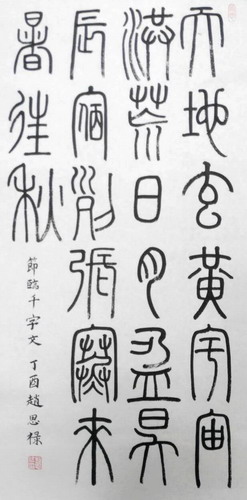 天地玄黃宇宙
洪荒日月盈昃
辰宿列張寒來
暑往秋
節臨千字文 丁酉趙思祿